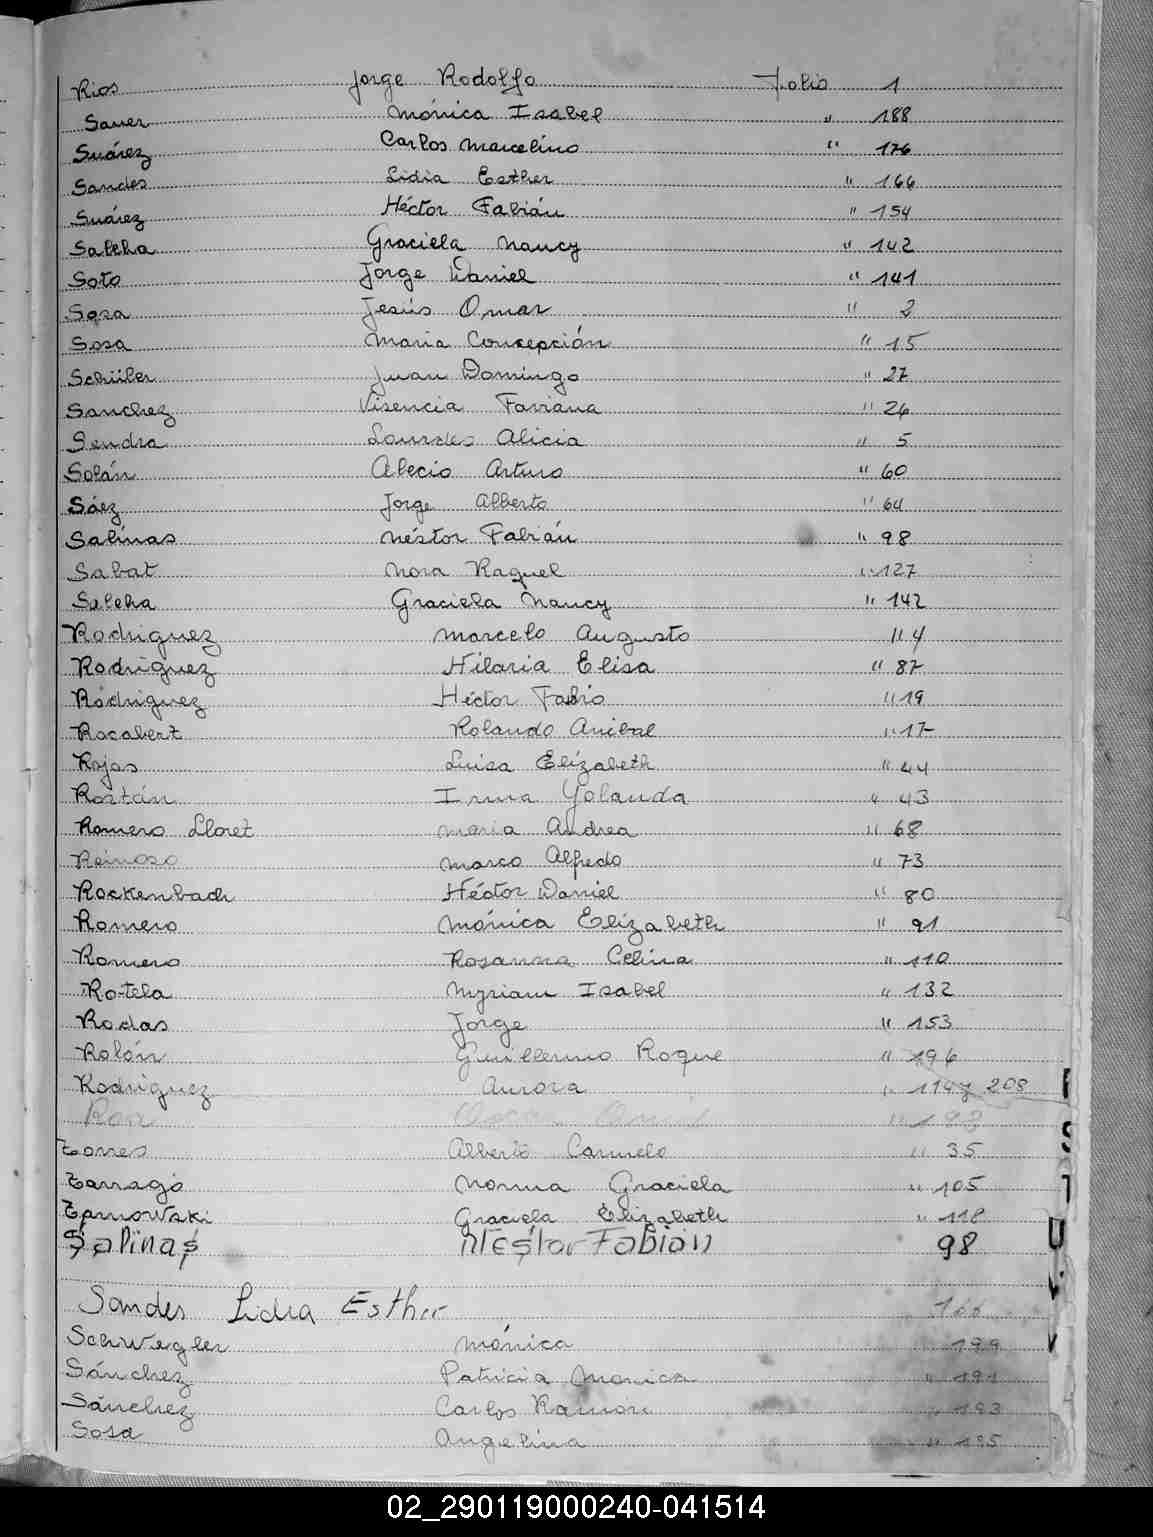 Rios Jorge Rodolfo Folio 1
Sauer Mónica Isabel " 188
Suárez Carlos Marcelino " 176
Sandes Lidia Esther " 166
Suárez Héctor Fabián " 154
Graciela Nancy " 142
Soto Jorge Daniel " 141
Sosa Jesús Omar " 2
Sosa Maria Concepción " 15
Juan Domingo " 27
Sanchez Visencia Faviana " 26
Sendra Lourdes Alicia " 5
Solán Alecio Arturo " 60
Sáez Jorge Alberto " 64
Salinas Néstor Fabián " 98
Sabat Nora Raquel " 127
Graciela Nancy " 142
Rodriguez Marcelo Augusto " 4
Rodriguez Hilaria Elisa " 87
Rodriguez Héctor Fabio " 19
Rocabert Rolando Anibal " 17
Rojas Luisa Elizabeth " 44
Roztán Irma Yolanda " 43
Romero Lloret Maria Andrea " 68
Reinoso Marco Alfredo " 73
Rockenbach Héctor Daniel " 80
Romero Mónica Elizabeth " 91
Romero Rosanna Celina " 110
Rotela Myriam Isabel " 132
Rodas Jorge " 153
Rolón Guillermo Roque " 196
Rodriguez Aurora " 208
Roa Oscar
Torres Alberto Carmelo " 35
Tarragó Norma Graciela " 105
Tarnowski Graciela Elizabeth " 118
Salinas Nestor Fabián 98
Sandes Lidia Esther 166
Schwegler Mónica 199
Sánchez Patricia Monica " 191
Sánchez Carlos Ramon " 193
Sosa Angelina " 195
02_290119000240-041514